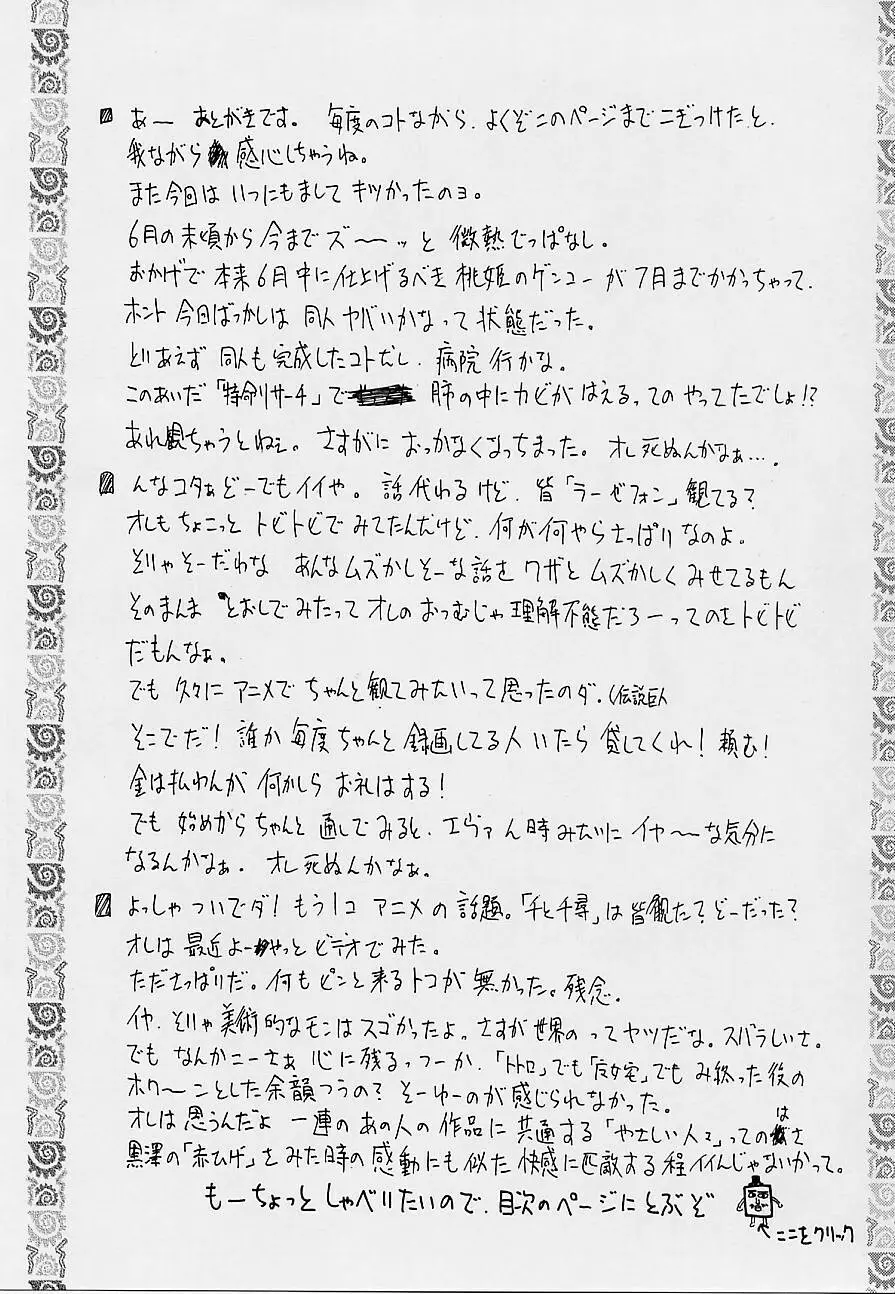 あー あとがきです。 毎度のコトながら、よくぞこのページまでこぎつけたと、
我ながら感心しちゃうね。
また今回はいつにもましてキツかったのヨ。
6月の末頃から今までズ〜〜ッと 微熱でっぱなし。
おかげで本来6月中に仕上げるべき桃姫のゲンコーが7月までかかっちゃって、
ホント今回ばっかしは同人ヤバいかなって状態だった。
とりあえず同人も完成したコトだし、病院行かな。
このあいだ「特命リサーチ」で 肺の中にカビがはえるってのやってたでしょ!?
あれ観ちゃうとねェ。さすがにおっかなくなっちまった。オレ死ぬんかなぁ…．
んなコタぁどーでもイイや。話代わるけど、皆「ラーゼフォン」観てる?
オレもちょこっとトビトビでみてたんだけど、何が何やらさっぱりなのよ。
そりゃそーだわな あんなムズかしそーな話をワザとムズかしくみせてるもん
そのまんま とおしでみたってオレのおつむじゃ理解不態だろーってのをトビトビ
だもんなぁ。
でも久々にアニメでちゃんと観てみたいって思ったのダ、(伝説巨人
そこでだ! 誰か毎度ちゃんと録画してる人いたら貸してくれ! 頼む!
金は払わんが何かしらお礼はする!
でも始めからちゃんと通しでみると、エヴァん時みたいにイヤ〜〜な気分に
なるんかなぁ。オレ死ぬんかなぁ。
よっしゃついでダ! もう1コアニメの話題。「千と千尋」は皆観た? どーだった?
オレは最近よーやっとビデオでみた。
たださっぱりだ。何もピンと来るトコが無かった。残念．
イヤ、そりゃ美術的なモンはスゴかったよ。さすが世界のってヤツだな。スバラしいさ。
でもなんかこーさぁ 心に残るっつーか、「トトロ」でも「反女宅」でもみ終った後の
ホワ〜ンとした余韻つうの? そーゆーのが感じられなかった。
オレは思うんだよ 一連のあの人の作品に共通する「やさしい人々」ってのはさ
黒澤の「赤ひげ」をみた時の感動にも似た快感に匹敵する程イイんじゃないかって。
もーちょっとしゃべりたいので、目次のページにとぶぞ
ここをクリック